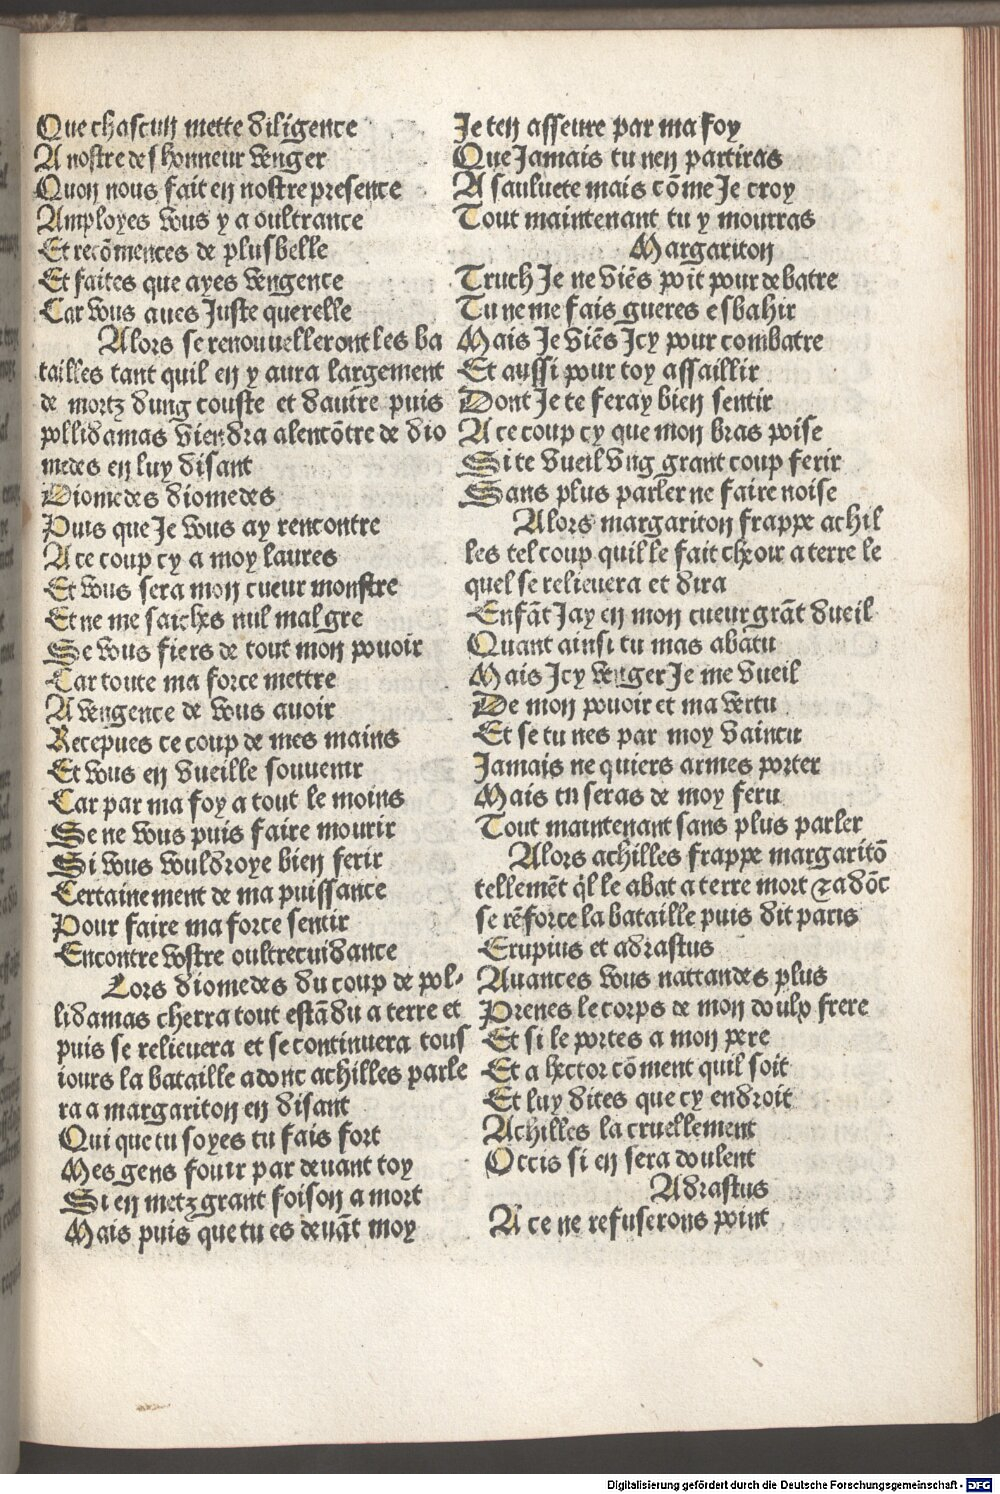 Que chascun mette diligence
A nostre deshonneur venger
Quon nous fait en nostre presence
Amployes vous y a oultrance
Et recõmences de plusbelle
Et faites que ayes vengence
Car vous aues Juste querelle
Alors se renouuelleront les ba
tailles tant quil en y aura largement
de mortz dung couste et dautre puis
pollidamas viendra alencõtre de dio
medes en luy disant
Diomedes diomedes
Puis que Je vous ay rencontre
A ce coup cy a moy laures
Et vous sera mon cueur monstre
Et ne me saiches nul mal gre
Se vous fiers de tout mon pouoir
Car toute ma force mettre
A vengence de vous auoir
Recepues ce coup de mes mains
Et vous en vueille souuenir
Car par ma foy a tout le moins
Se ne vous puis faire mourir
Si vous vouldroye bien ferir
Certainement de ma puissance
Pour faire ma force sentir
Encontre vostre oultrecuidance
Lors diomedes du coup de pol-
lidamas cherra tout estãdu a terre et
puis se relieuera et se continuera tous
iours la bataille adonc achilles parle
ra a margariton en disant
Qui que tu soyes tu fais fort
Mes gens fouir par deuant toy
Si en metz grant foison a mort
Mais puis que tu es deuãt moy
Je ten asseure par ma foy
Que Jamais tu nen partiras
A sauluete mais cõme Je croy
Tout maintenant tu y mourras
Margariton
Truch Je ne viẽs poit pour debatre
Tu ne me fais gueres esbahir
Mais Je viẽs Jcy pour combatre
Et aussi pour toy assaillir
Dont Je te feray bien sentir
A ce coup cy que mon bras poise
Si te vueil vng grant coup ferir
Sans plus parler ne faire noise
Alors margariton frappe achil
les tel coup quil le fait cheoir a terre le
quel se relieuera et dira
Enfãt Jay en mon cueur grãt dueil
Quant ainsi tu mas abatu
Mais Jcy venger Je me vueil
De mon pouoir et ma vertu
Et se tu nes par moy vaincu
Jamais ne quiers armes porter
Mais tu seras de moy feru
Tout maintenant sans plus parler
Alors achilles frappe margaritõ
tellemẽt q̇l le abat a terre mort ⁊ adõc
se rẽforce la bataille puis dit paris
Erupius et adrastus
Auances vous nattandes plus
Prenes le corps de mon doulx frere
Et si le portes a mon pere
Et a hector cõment quil soit
Et luy dites que cy endroit
Achilles la cruellement
Occis si en sera doulent
Adrastus
A ce ne refuserons point
Digitalisierung gefördert durch die Deutsche Forschungsgemeinschaft - DFG